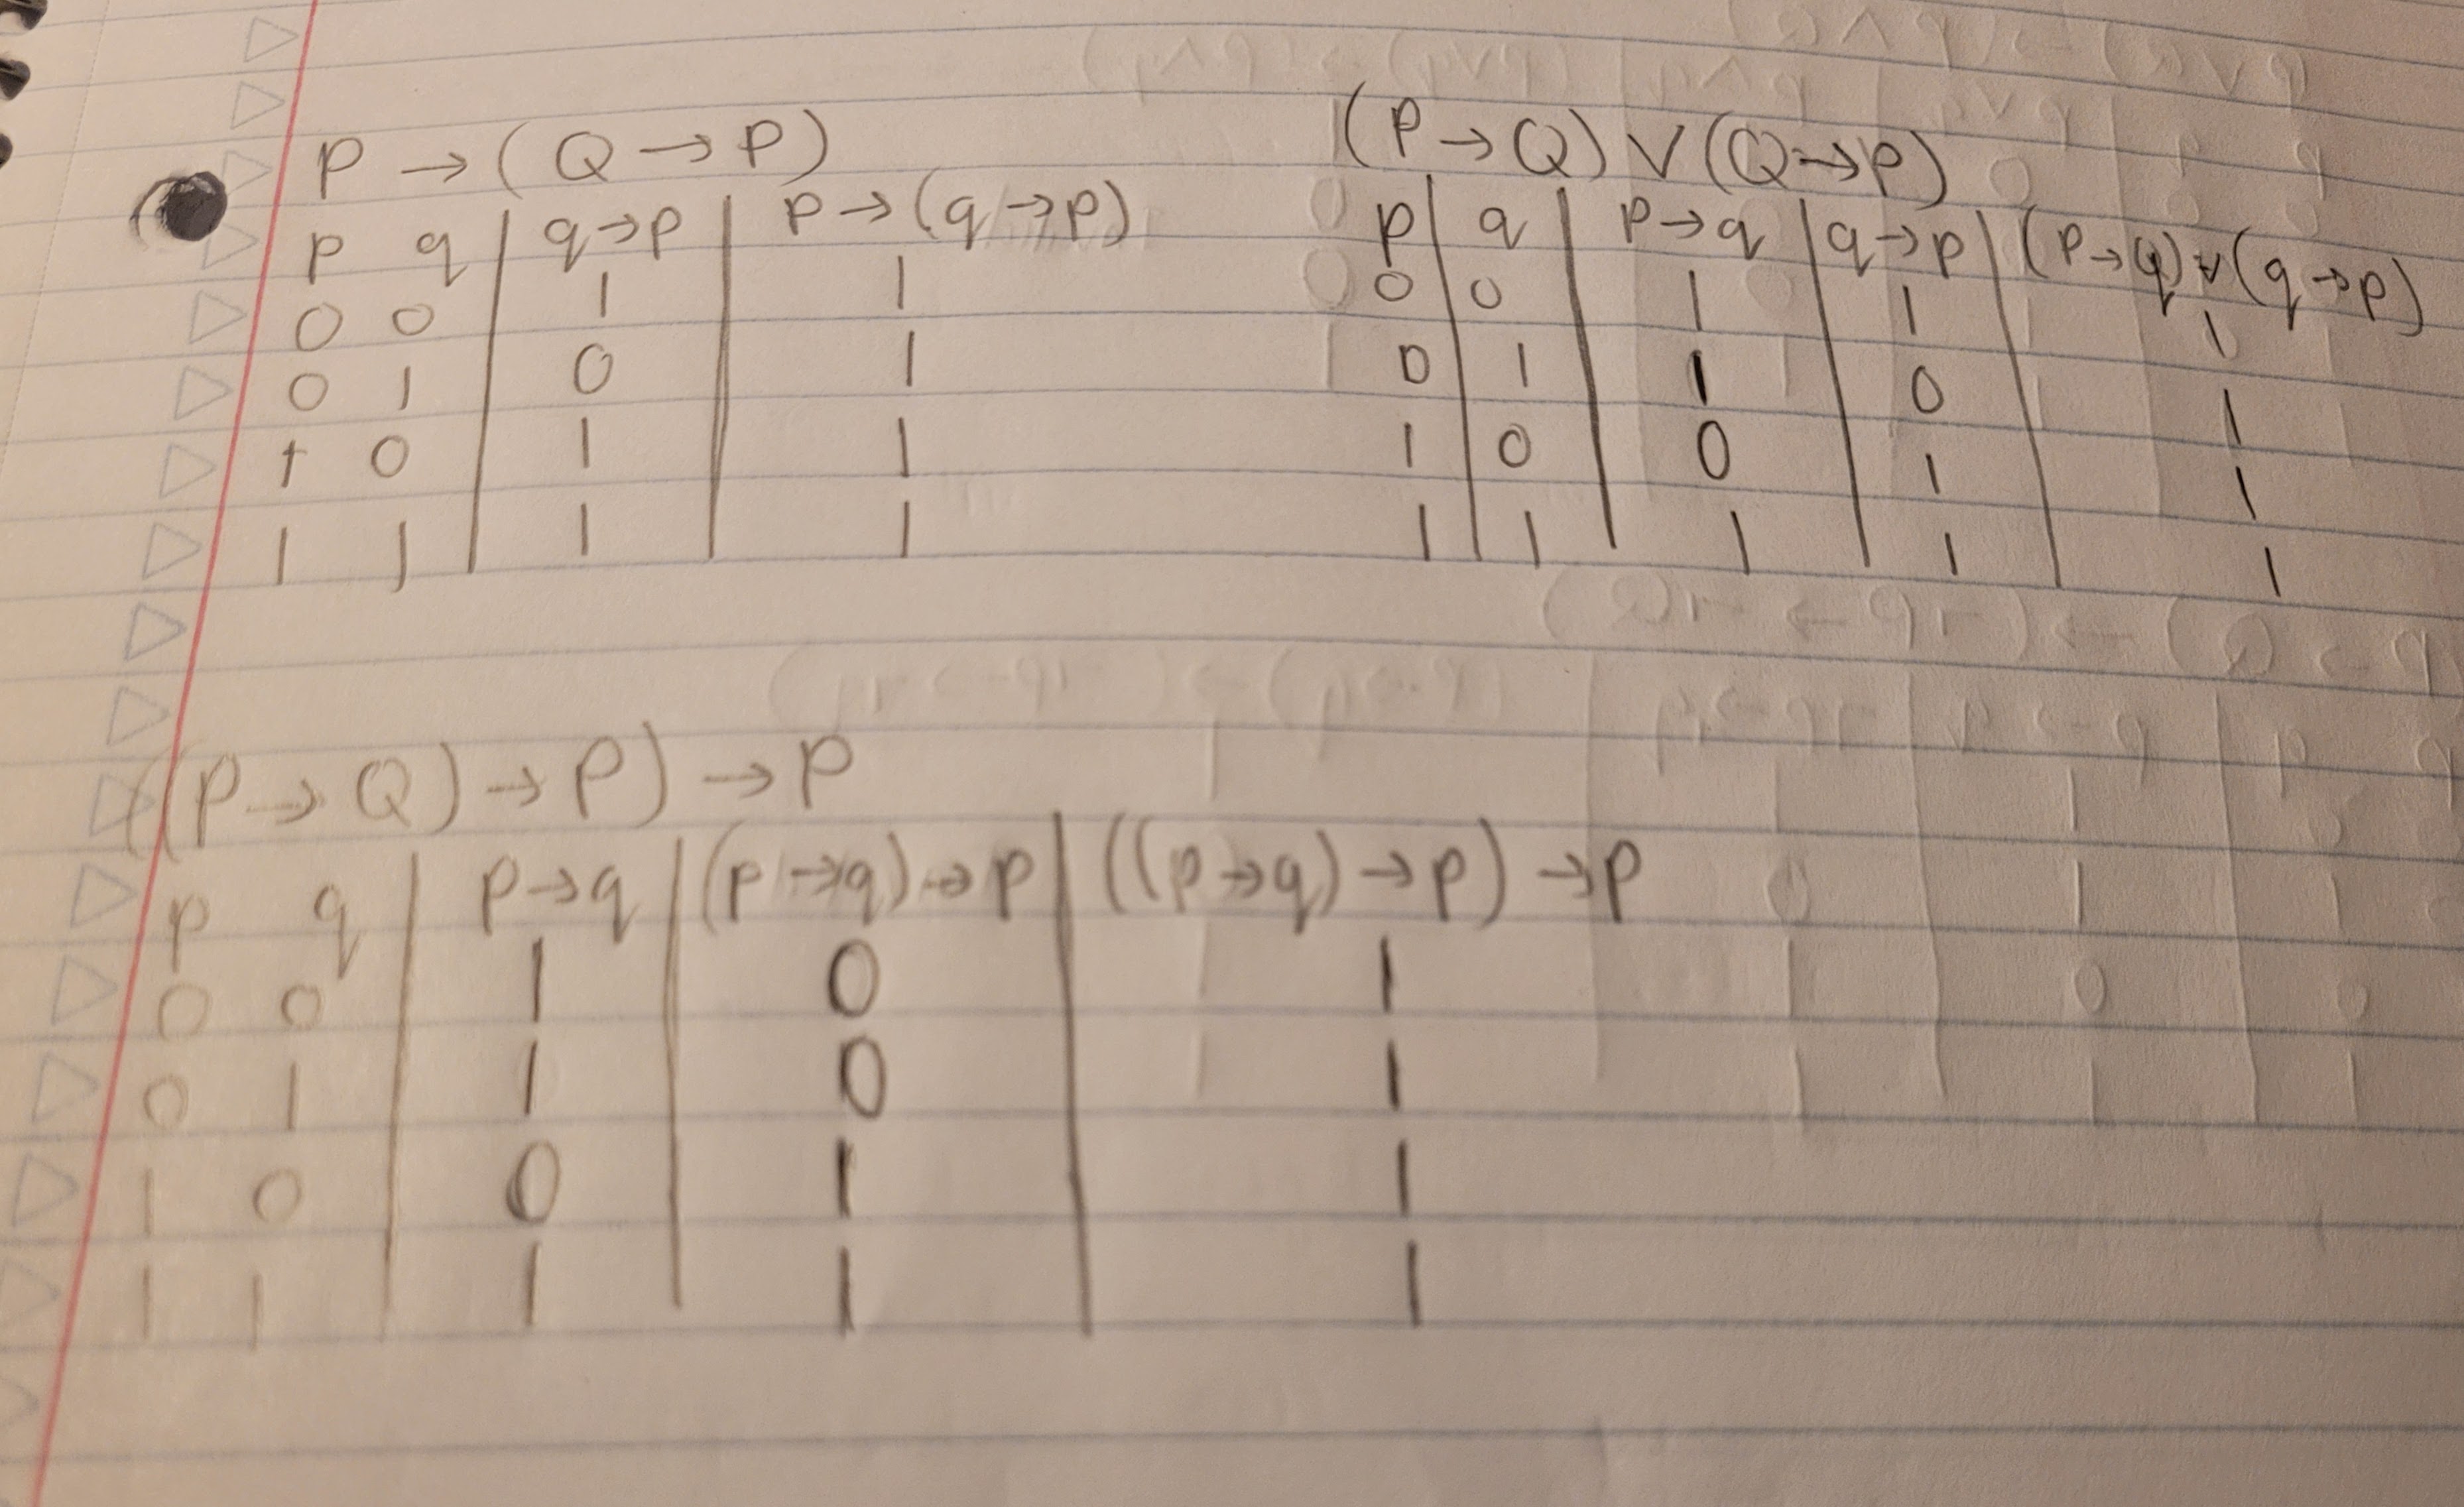 P → (Q → P)
p q | q→p | p→(q→p)
0 0 | 1 | 1
0 1 | 0 | 1
1 0 | 1 | 1
1 1 | 1 | 1
(P→Q) ∨ (Q→P)
p | q | p→q | q→p | (P→Q)∨(q→p)
0 | 0 | 1 | 1 | 1
0 | 1 | 1 | 0 | 1
1 | 0 | 0 | 1 | 1
1 | 1 | 1 | 1 | 1
((P→Q)→P)→P
p q | p→q | (p→q)→p | ((p→q)→p)→p
0 0 | 1 | 0 | 1
0 1 | 1 | 0 | 1
1 0 | 0 | 1 | 1
1 1 | 1 | 1 | 1